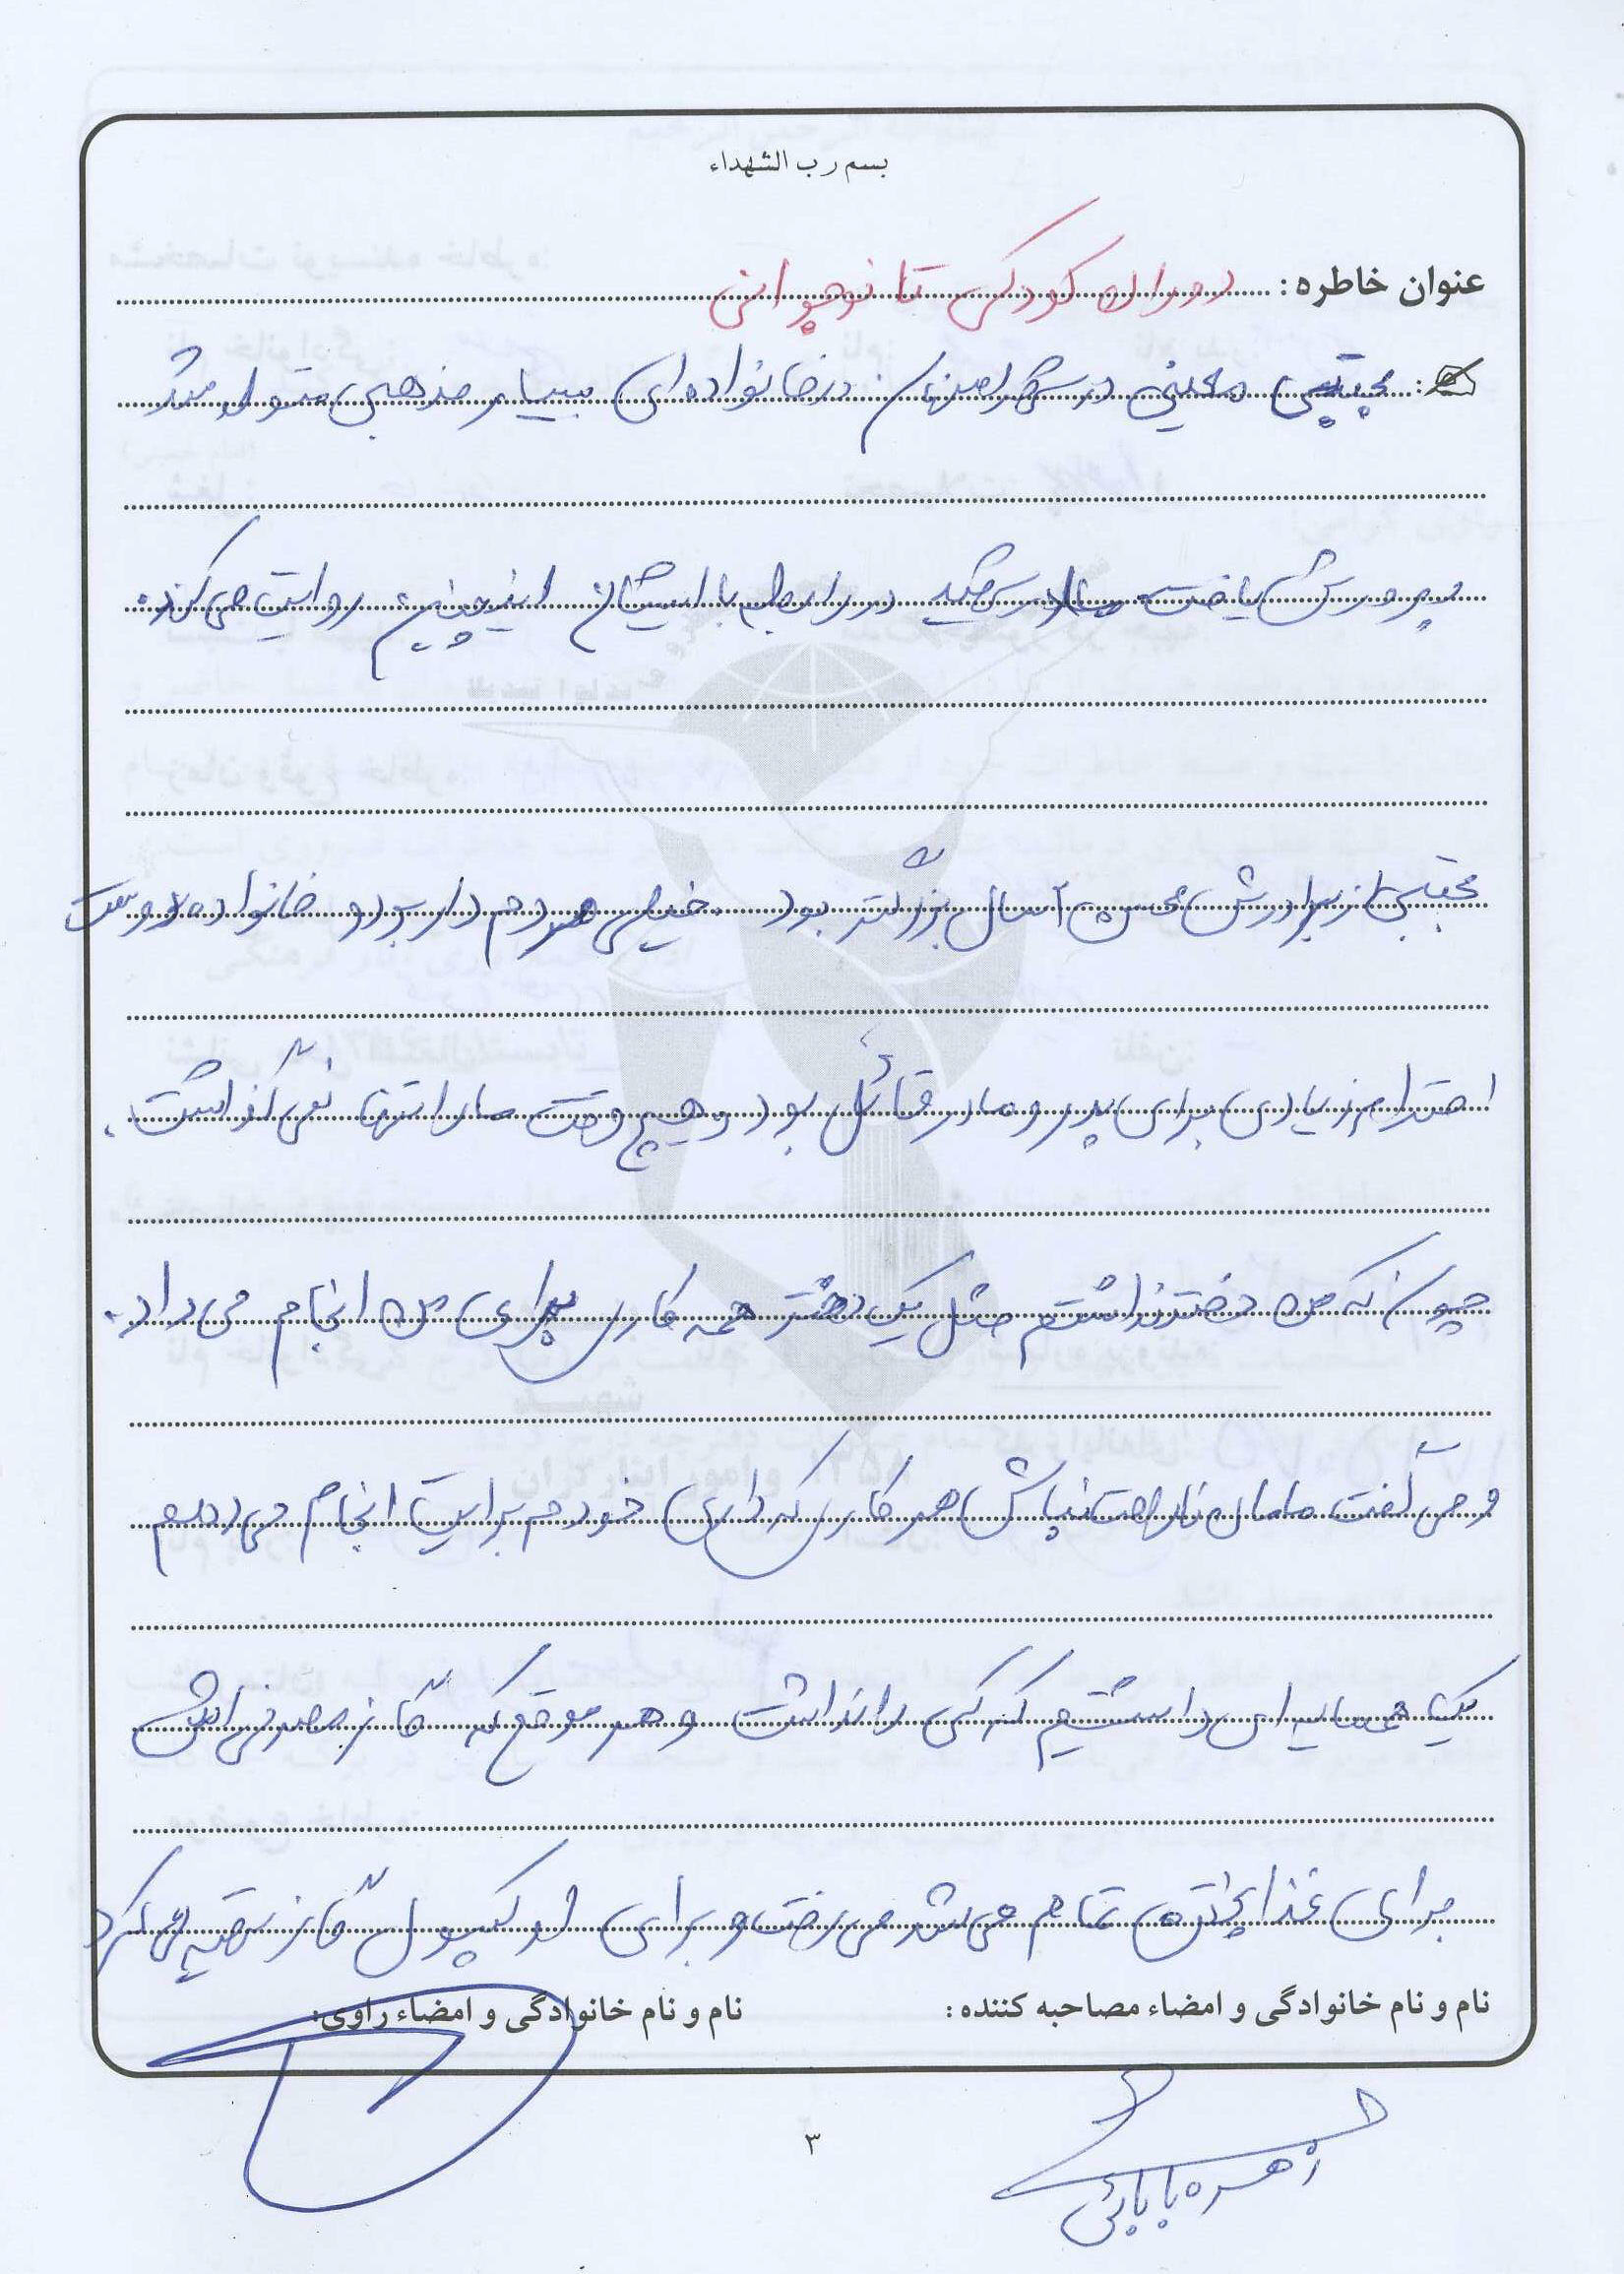 بسم رب الشهداء
عنوان خاطره: دوران کودکی تا نوجوانی
مجتبی معینی در شهر اصفهان در خانواده ای بسیار مذهبی متولد شد
پرورش یافت مادر شهید در رابطه با ایشان اینچنین روایت می کند.
مجتبی از برادرش محسن ۲ سال بزرگتر بود. خیلی مردم دار بود و خانواده دوست
احترام زیادی برای پدر و مادر قائل بود و هیچ وقت ما را تنها نمی گذاشت.
چون که من دختر نداشتم مثل یک دختر همه کاری برای من انجام می داد.
و می گفت مامان ناراحت نباش هر کاری که داری خودم برایت انجام می دهم
یک همسایه ای داشتیم که کسی را نداشت و هر موقع که گاز مصرفی اش
برای غذا پختن تمام می شد می رفت و برای او کپسول گاز تهیه می کرد
نام و نام خانوادگی و امضاء مصاحبه کننده: نام و نام خانوادگی و امضاء راوی:
زهره بابائی
۳